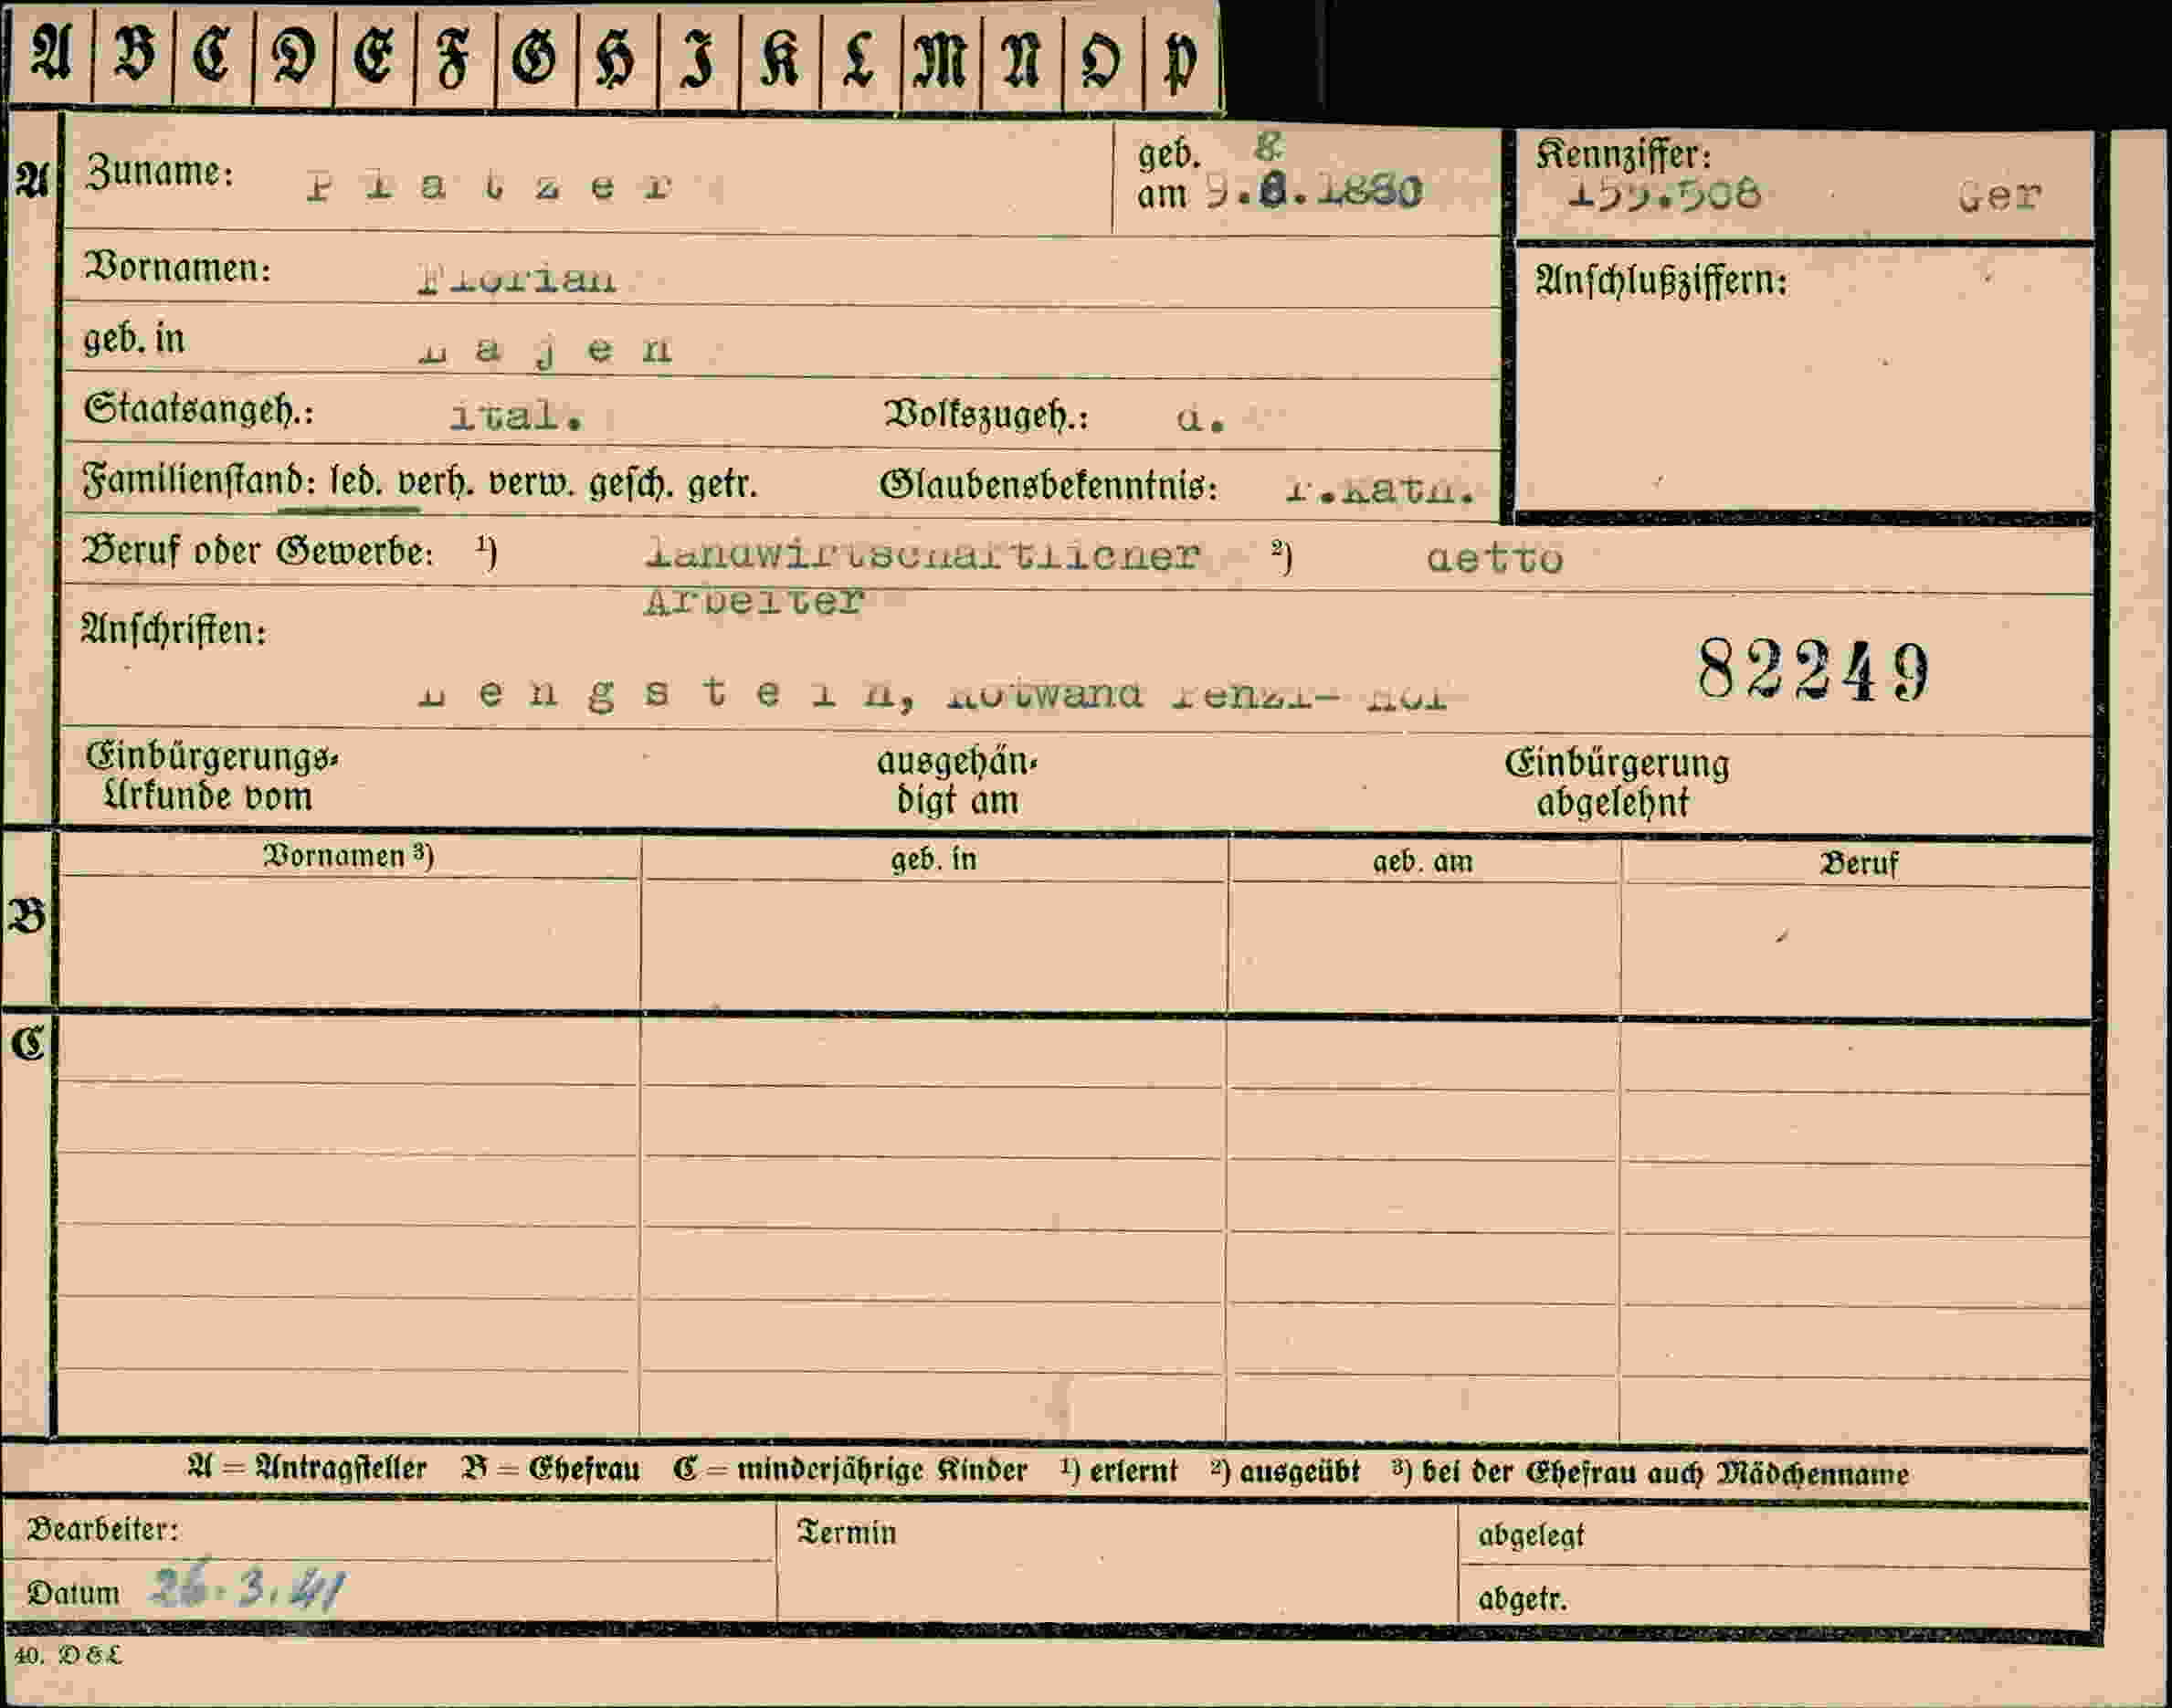 A B C D E F G H I K L M N O P
A Zuname: Platzer geb. am 9.8.1880 8 Kennziffer: 159.508 Ger
Vornamen: Florian Anschlußziffern:
geb. in Lajen
Staatsangeh.: ital. Volkszugeh.: d.
Familienstand: led. verh. verw. gesch. getr. Glaubensbekenntnis: r.kath.
Beruf oder Gewerbe: 1) landwirtschaftlicher 2) detto
Arbeiter
Anschriften:
82249
Lengstein, Rotwand Penzl- Hof
Einbürgerungs- Urkunde vom ausgehän- digt am Einbürgerung abgelehnt
Vornamen 3) geb. in geb. am Beruf
B
C
A = Antragsteller B = Ehefrau C = minderjährige Kinder 1) erlernt 2) ausgeübt 3) bei der Ehefrau auch Mädchenname
Bearbeiter: Termin abgelegt
Datum 26.3.41 abgetr.
40. D & L